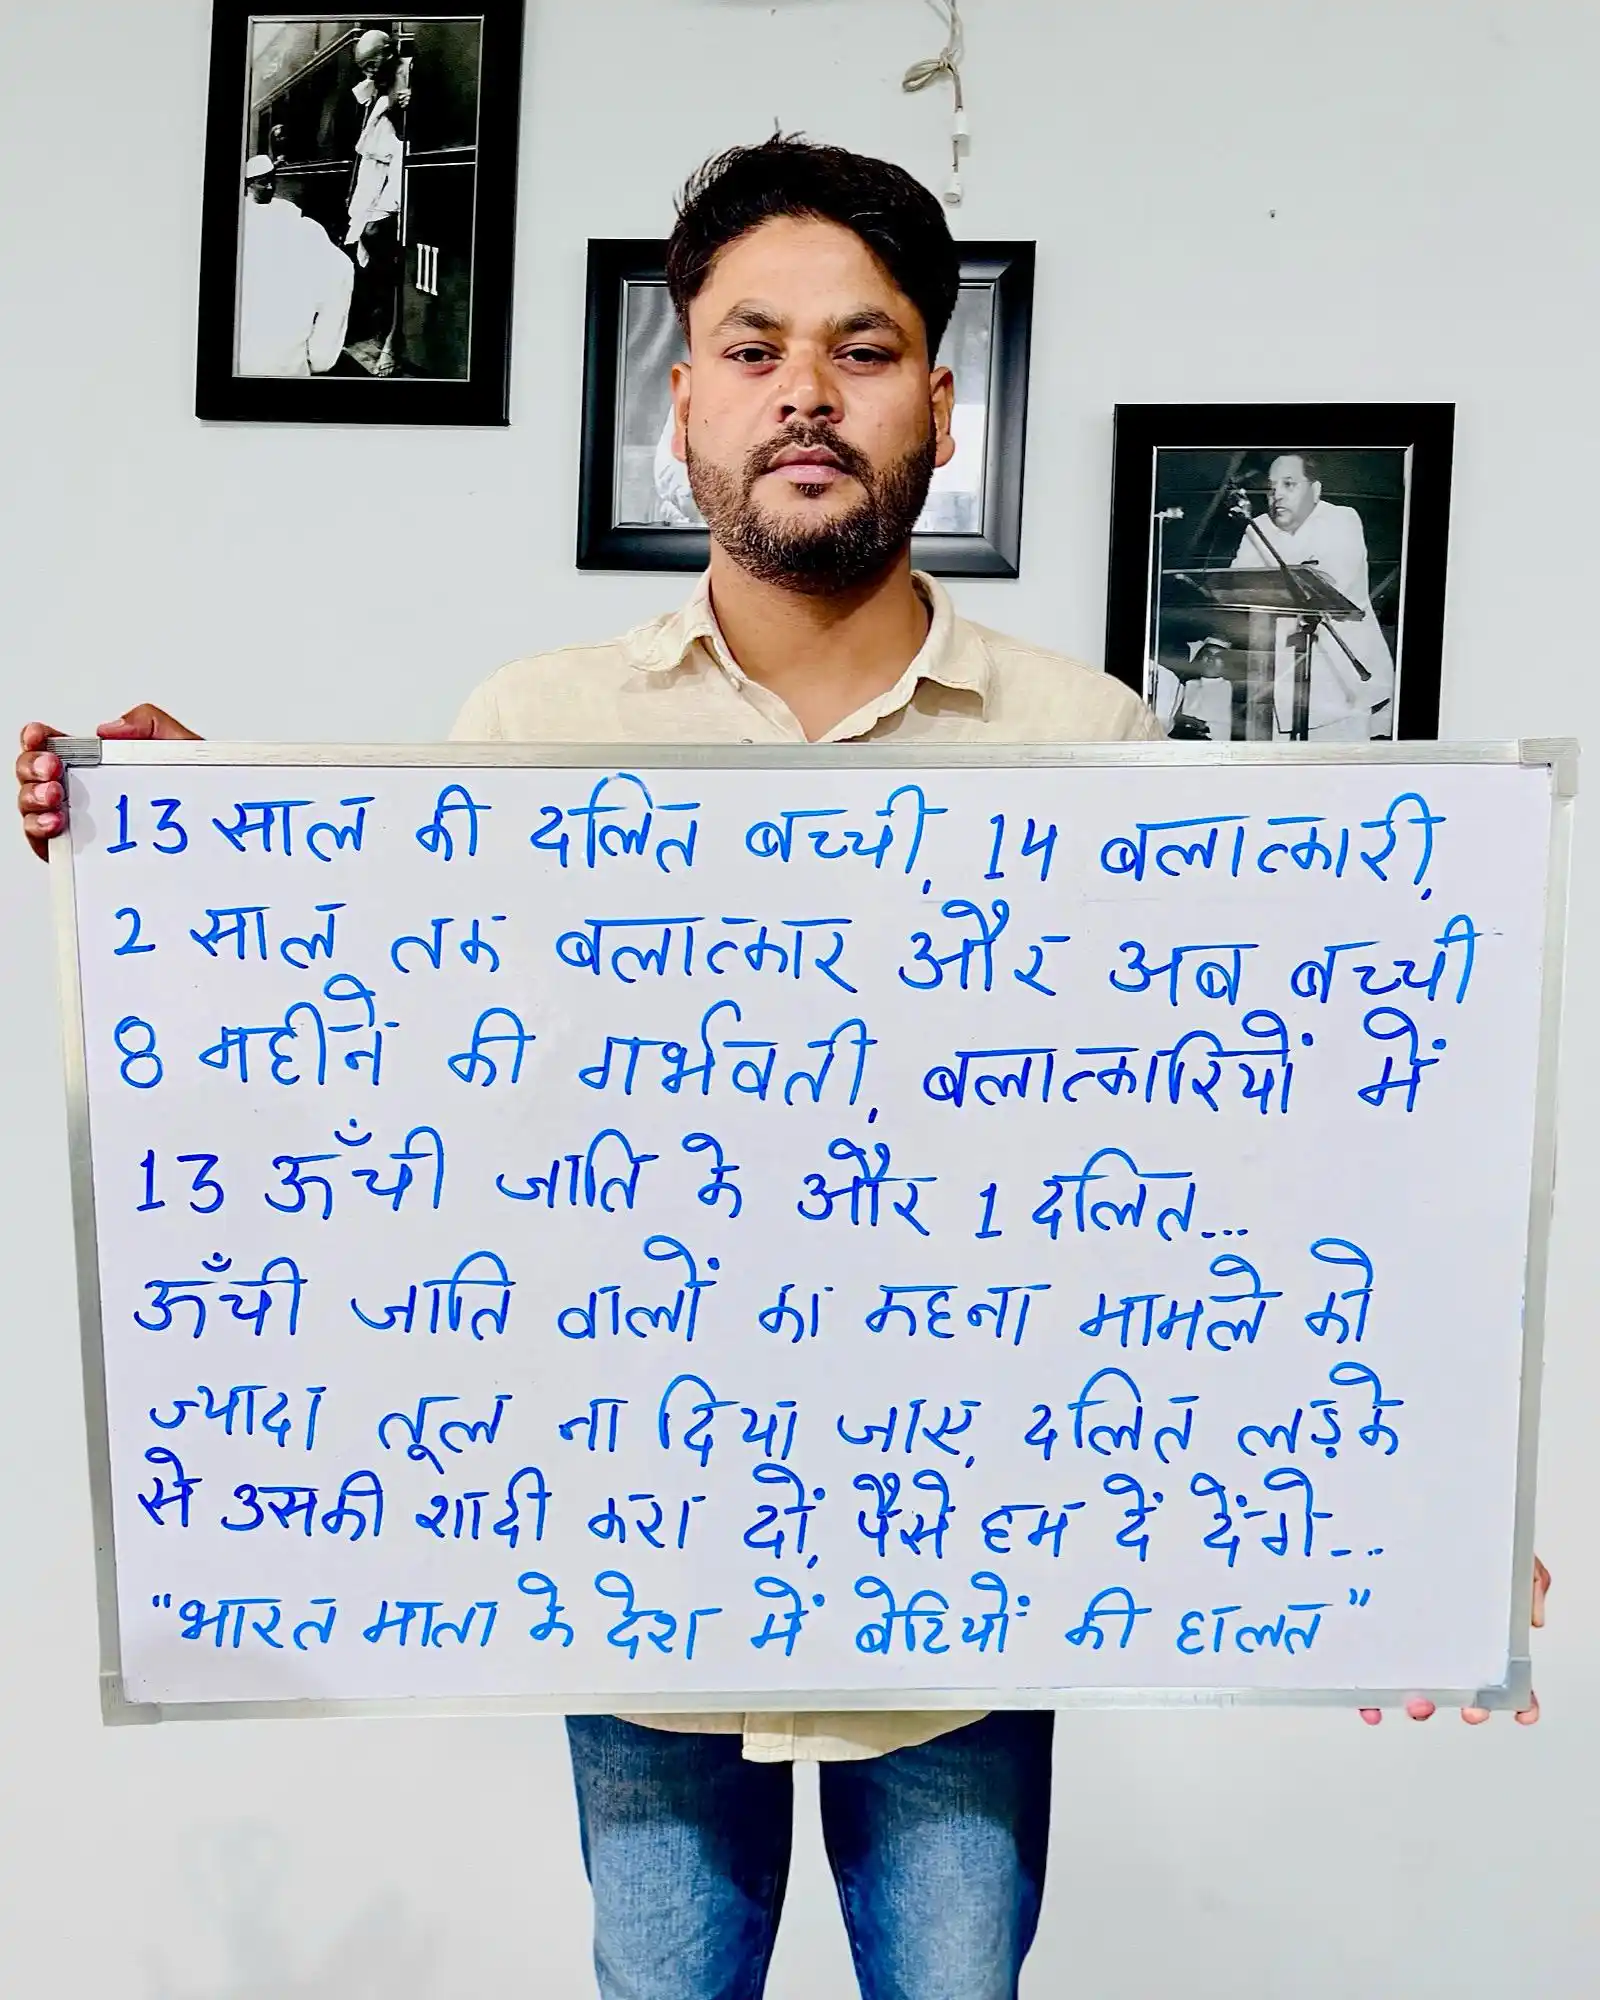 13 साल की दलित बच्ची, 14 बलात्कारी,
2 साल तक बलात्कार और अब बच्ची
8 महीने की गर्भवती, बलात्कारियों में
13 ऊँची जाति के और 1 दलित...
ऊँची जाति वालों का कहना मामले को
ज्यादा तूल ना दिया जाए, दलित लड़के
से उसकी शादी करा दों, पैसे हम दें देंगे...
"भारत माता के देश में बेटियों की हालत"